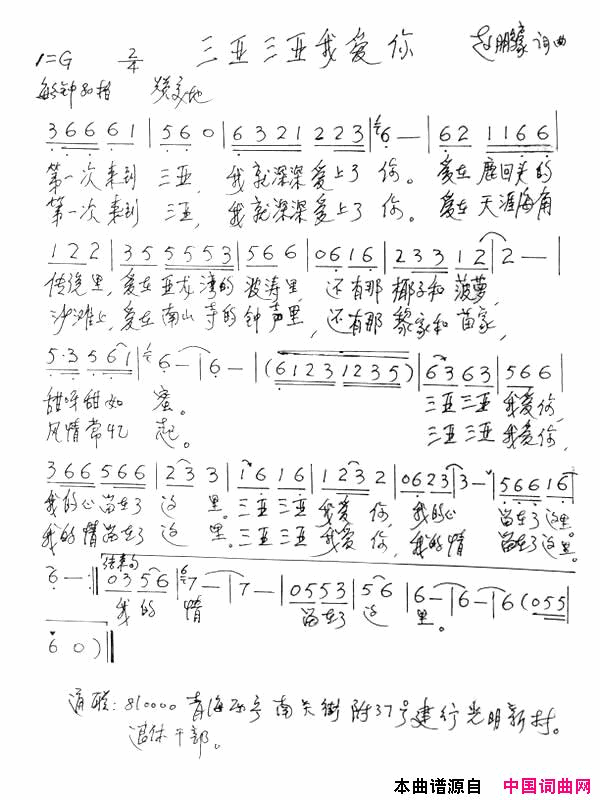 1=G 2/4 三亚三亚我爱你 赵鹏 词曲
每分钟 拍
3 6 6 6 6 1 | 5 6 0 | 6 3 2 1 2 2 3 | 6 — | 6 2 1 1 6 6 |
第一次来到 三亚, 我就深深爱上了 你。 爱在 鹿回头的
第一次来到 三亚, 我就深深爱上了 你。 爱在 天涯海角
1 2 2 | 3 5 5 5 5 5 3 | 5 6 6 | 0 6 1 6 | 2 3 3 1 2 | 2 — |
传说里, 爱在亚龙湾的 波涛里, 还有那 椰子和 菠萝,
沙滩上, 爱在南山寺的 钟声里, 还有那 黎家和 苗家,
5·3 5 6 1 | 6 — | 6 — | (6 1 2 3 1 2 3 5) | 6 3 6 3 | 5 6 6 |
甜呀甜如 蜜。 三亚三亚 我爱你,
风情常忆 起。 三亚三亚 我爱你,
3 6 6 5 6 6 | 2 3 3 | 1 6 1 6 | 1 2 3 2 | 0 6 2 3 | 3 — | 5 6 6 1 6 |
我的心留在了 这 里。三亚三亚 我爱 你, 我的心 留在了这里。
我的情留在了 这 里。三亚三亚 我爱 你, 我的情 留在了这里。
结束句
6 — :‖ 0 3 5 6 | 7 — | 7 — | 0 5 5 3 | 5 6 | 6 — | 6 — | 6 (0 5 5 |
我的 情 留在了 这 里。
6 0 )‖
通联: 810000 青海西宁南关街附37号建行光明新村。
退休干部。
本曲谱源自 中国词曲网